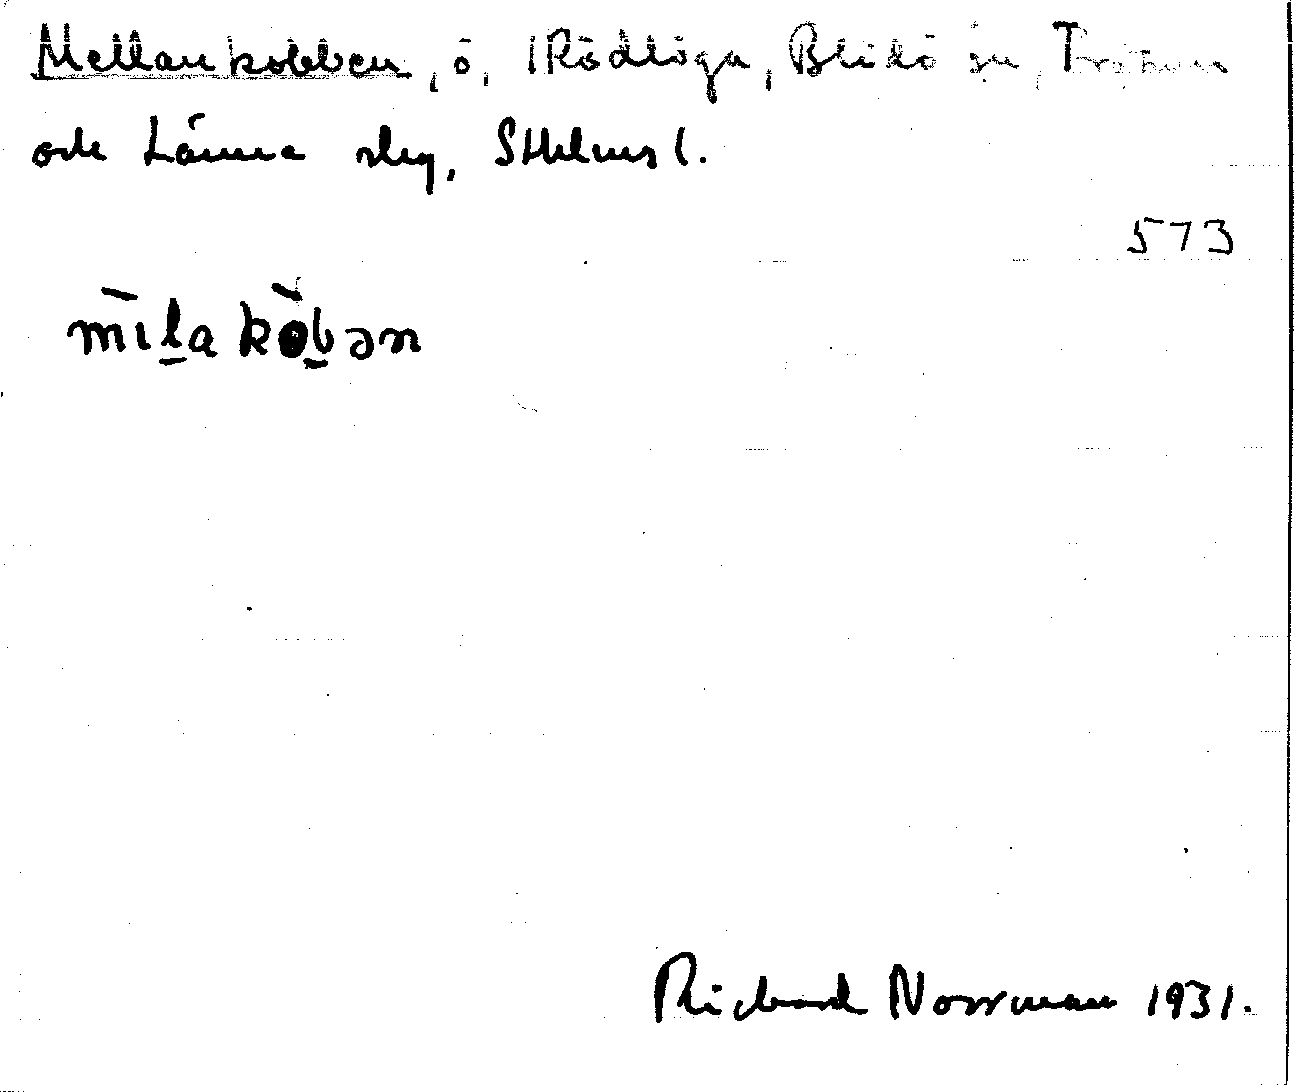 Mellankobben, ö, 1 Rödlöga, Blidö sn, Frötuna
och Länna slg, Sthlms l.
573
mìlakòbən
Richard Norrman 1931.